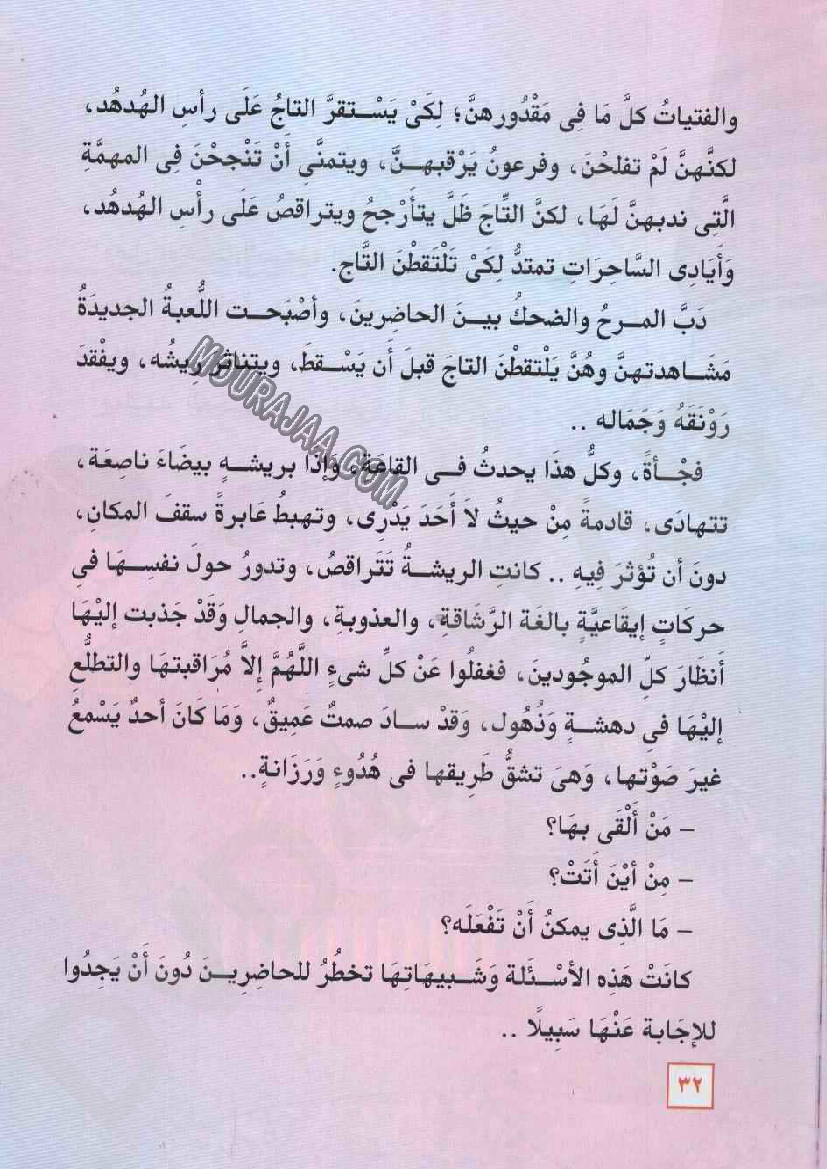 والفتياتُ كلَّ مَا فِى مَقْدُورهنَّ؛ لِكَىْ يَسْتقرَّ التاجُ عَلَى رأسِ الهُدهُد،
لكنَّهنَّ لَمْ تفلحْنَ، وفرعونُ يَرْقبهنَّ، ويتمنَّى أَنْ تَنْجحْنَ فِى المهمَّةِ
الَّتِى ندبهنَّ لَهَا، لكنَّ التَّاجَ ظَلَّ يتأرْجحُ ويتراقصُ عَلَى رأْسِ الهُدهُد،
وَأَيَادِى السَّاحِرَاتِ تمتدُّ لِكَىْ تَلْتَقطْنَ التَّاج.
دَبَّ المرحُ والضحكُ بينَ الحاضِرينَ، وأصْبَحت اللُّعبةُ الجديدَةُ
مَشَاهدتهنَّ وهُنَّ يَلْتقطْنَ التاجَ قبلَ أَن يَسْقطَ، ويتناثر رِيشُه، ويفْقدَ
رَوْنَقَهُ وَجَمَاله ..
فجْأةً، وكلُّ هذَا يحدثُ فى القاعَةِ، وَإذَا بريشهٍ بيضَاءَ ناصِعَة،
تتهادَى، قادمةً مِنْ حيثُ لاَ أَحَدَ يَدْرِى، وتهبطُ عَابرةً سقفَ المكانِ،
دونَ أن تُؤثرَ فِيهِ .. كانتِ الريشةُ تَتَراقصُ، وتدورُ حولَ نفسِهَا فِى
حركَاتٍ إيقَاعيَّةٍ بالغَة الرَّشَاقةِ، والعذوبةِ، والجمالِ وَقَدْ جَذبت إليْهَا
أَنظَارَ كلِّ الموجُودينَ، فغفلُوا عَنْ كلِّ شىءٍ اللَّهُمَّ إلاَّ مُرَاقبتهَا والتطلُّعِ
إليْهَا فى دهشةٍ وَذُهُول، وَقدْ سادَ صمتٌ عَمِيقٌ، وَمَا كَانَ أحدٌ يَسْمعُ
غيرَ صَوْتها، وَهىَ تشقُّ طَرِيقها فى هُدُوءٍ وَرَزَانةٍ..
– مَنْ أَلْقَى بهَا؟
– مِنْ أيْنَ أَتَتْ؟
– مَا الَّذِى يمكنُ أَنْ تَفْعَلَه؟
كانَتْ هَذِه الأسْئَلة وَشَبيهَاتِهَا تخطُرُ للحاضِرِينَ دُونَ أَنْ يَجِدُوا
للإجَابة عَنْهَا سَبِيلًا ..
٣٢
MOURAJAA.COM